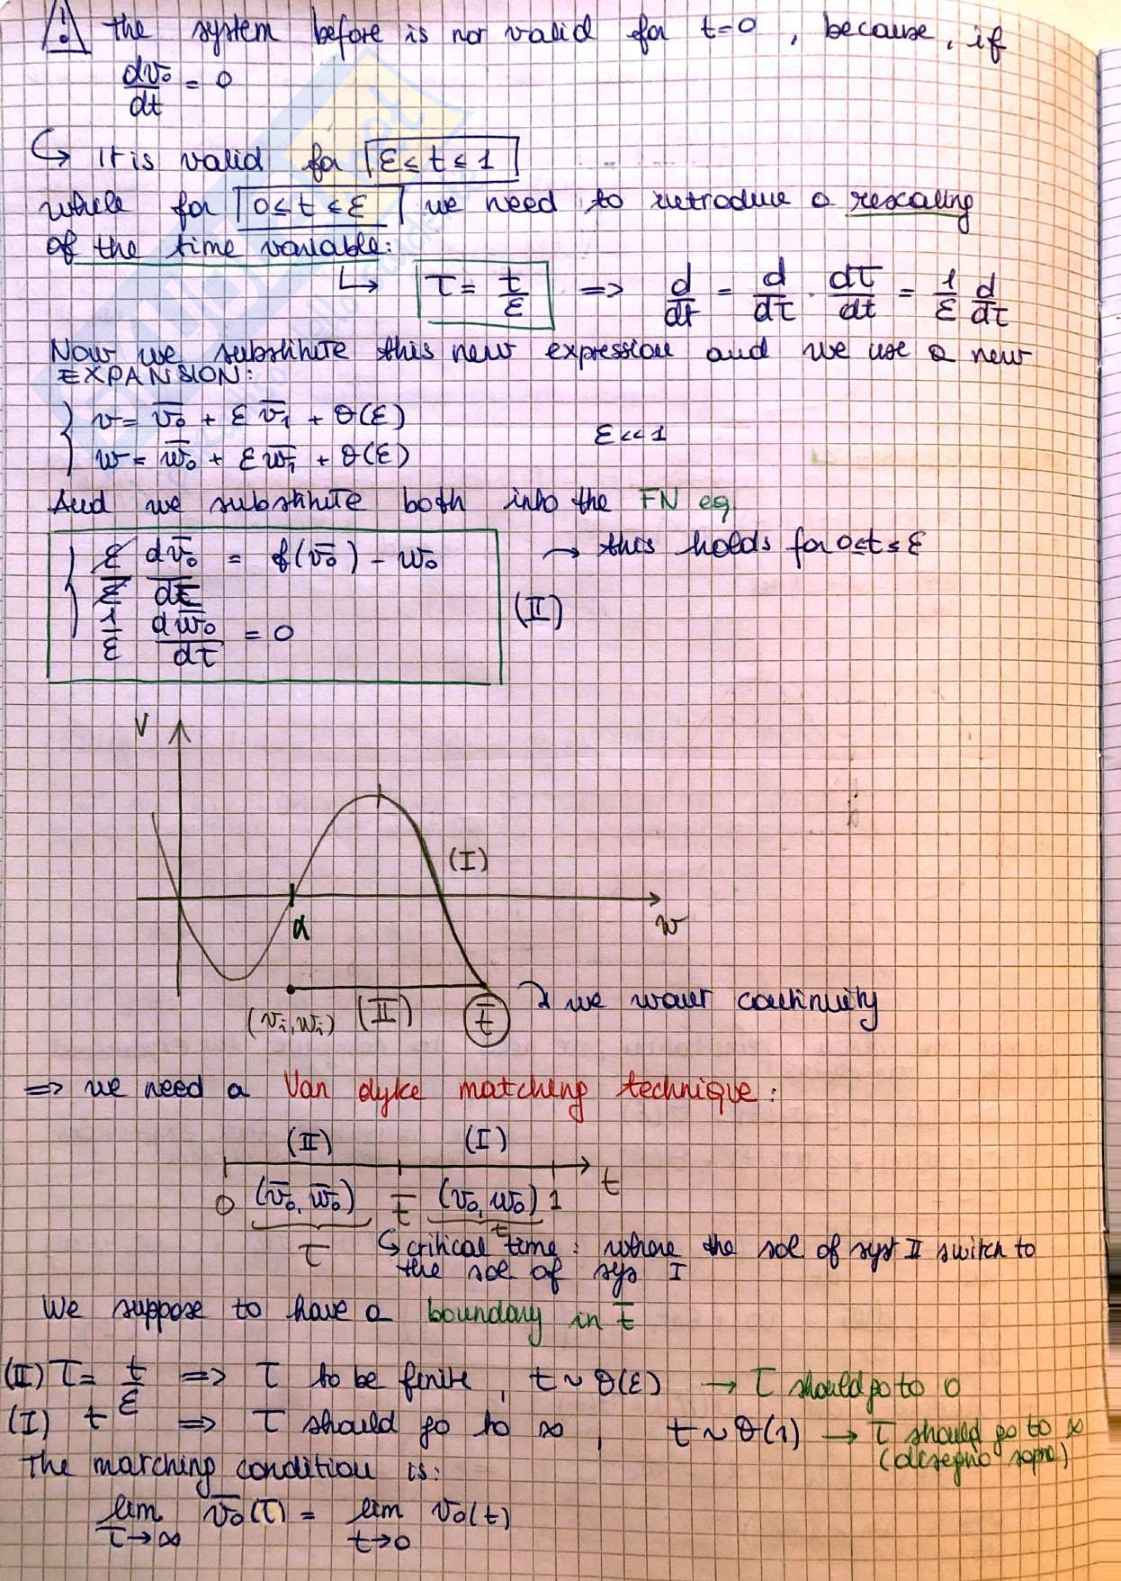 ! the system before is not valid for t=0, because, if
dv₀/dt = 0
↳ It is valid for ε≤t≤1
while for 0≤t≤ε we need to introduce a rescaling
of the time variable:
↳ τ = t/ε ⇒ d/dt = d/dτ · dτ/dt = 1/ε d/dτ
Now we substitute this new expression and we use a new
EXPANSION:
{ v = v̄₀ + ε v̄₁ + θ(ε)
w = w̄₀ + ε w̄₁ + θ(ε) ε<<1
And we substitute both into the FN eq
{ ε/ε dv̄₀/dτ = f(v̄₀) - w̄₀ → this holds for 0≤t≤ε
1/ε dw̄₀/dτ = 0 (II)
V
(I)
α w
(vᵢ, wᵢ) (II) t̄ we want continuity
⇒ we need a Van dyke matching technique:
(II) (I)
0 (v̄₀, w̄₀) t̄ (v₀, w₀) 1 t
τ t
↳ critical time: where the sol of syst II switch to
the sol of sys I
We suppose to have a boundary in t̄
(II) τ = t/ε ⇒ τ to be finite, t ~ θ(ε) → τ should go to 0
(I) t ⇒ τ should go to ∞, t ~ θ(1) → τ should go to ∞
(disegno sopra)
The matching condition is:
lim τ→∞ v̄₀(τ) = lim t→0 v₀(t)